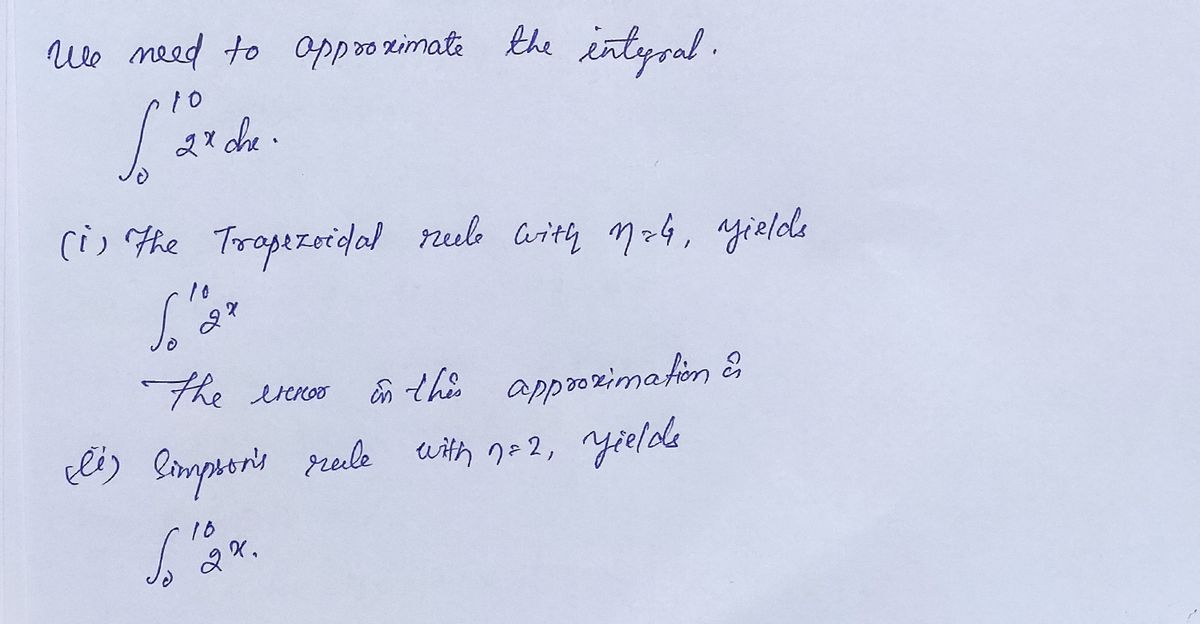 We need to approximate the integral.
∫₀¹⁰ 2ˣ dx.
(i) The Trapezoidal rule with n=4, yields
∫₀¹⁰ 2ˣ
The error in this approximation is
(ii) Simpson's rule with n=2, yields
∫₀¹⁰ 2ˣ.